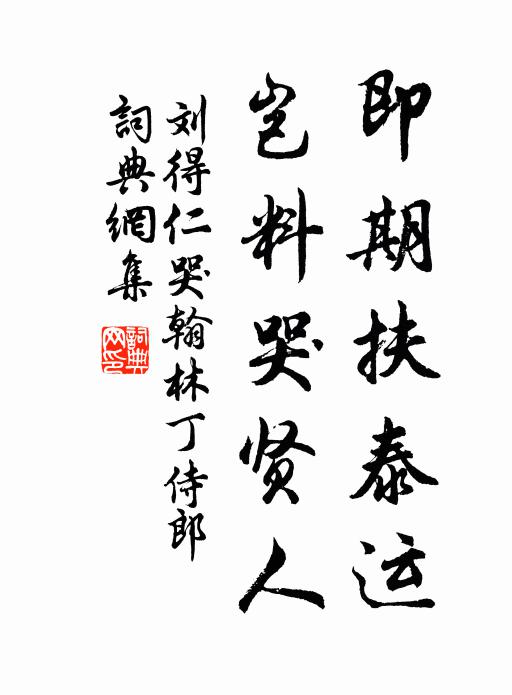 即期扶泰运
岂料哭贤人
刘得仁哭翰林丁侍郎
詞典網集
詞典
网印